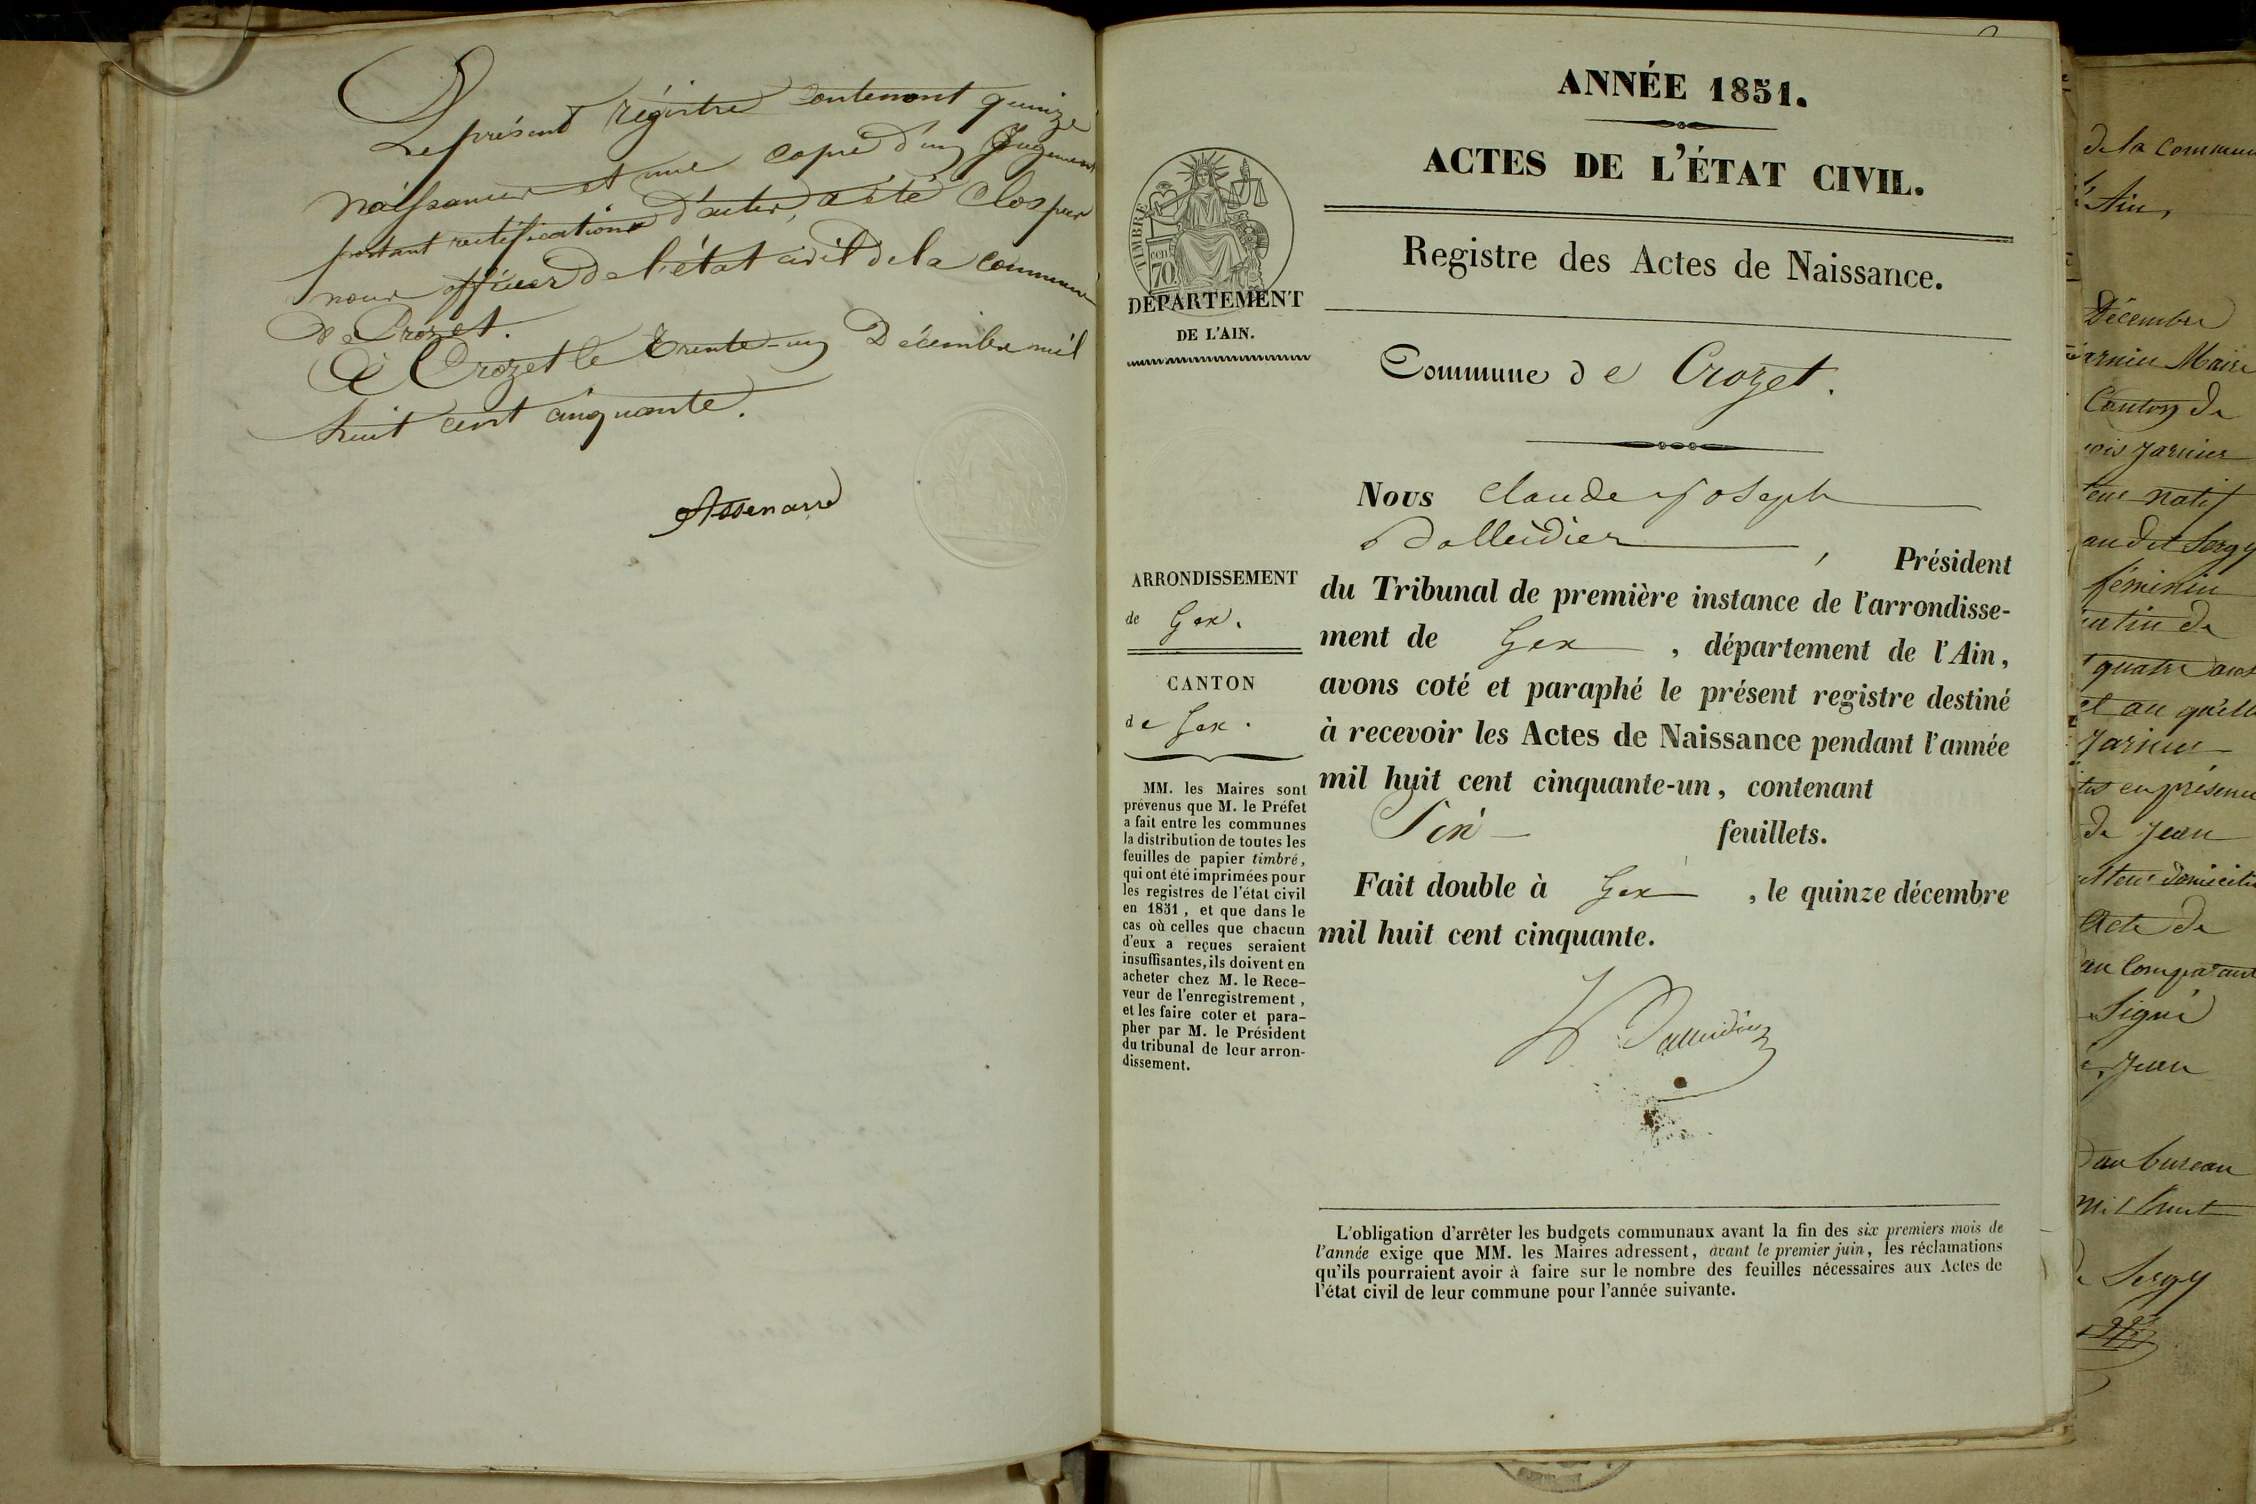 Le présent régistre contenant quinze
naissances et une copie d'un Jugement
portant rectification d'actes, a été clos par
nous officier de l'état civil de la commune
de Crozet.
à Crozet le trente-un Décembre mil
huit cent cinquante.
ANNÉE 1851.
ACTES DE L'ÉTAT CIVIL.
Registre des Actes de Naissance.
TIMBRE
CEN
70
DÉPARTEMENT
DE L'AIN.
Commune de Crozet.
ARRONDISSEMENT
de Gex.
CANTON
de Gex.
MM. les Maires sont
prévenus que M. le Préfet
a fait entre les communes
la distribution de toutes les
feuilles de papier timbré,
qui ont été imprimées pour
les registres de l'état civil
en 1851, et que dans le
cas où celles que chacun
d'eux a reçues seraient
insuffisantes, ils doivent en
acheter chez M. le Rece-
veur de l'enregistrement,
et les faire coter et para-
pher par M. le Président
du tribunal de leur arron-
dissement.
Nous Claude Joseph
, Président
du Tribunal de première instance de l'arrondisse-
ment de Gex, département de l'Ain,
avons coté et paraphé le présent registre destiné
à recevoir les Actes de Naissance pendant l'année
mil huit cent cinquante-un, contenant
Six feuillets.
Fait double à Gex, le quinze décembre
mil huit cent cinquante.
L'obligation d'arrêter les budgets communaux avant la fin des six premiers mois de
l'année exige que MM. les Maires adressent, avant le premier juin, les réclamations
qu'ils pourraient avoir à faire sur le nombre des feuilles nécessaires aux Actes de
l'état civil de leur commune pour l'année suivante.
de la commun
Ain,
Décembre
Maire
Canton de
Jarnier
natif
au dit Sergy
féminin
quatre
et au
Jarnier
en présence
de Jean
Acte de
au comparant
Signé
Jean
au bureau
mil huit
Sergy